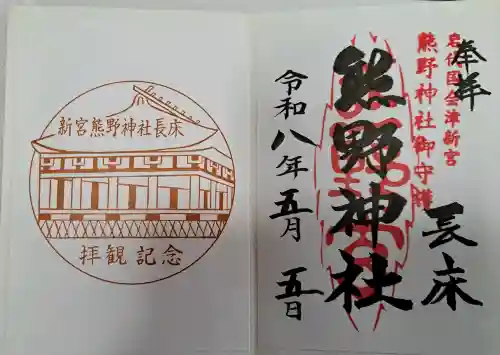 新宮熊野神社長床
拝観記念
奉拝
岩代国会津新宮
熊野神社御守護
長床
熊野神社
令和八年五月五日